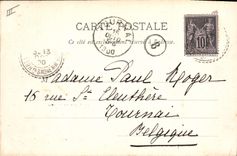 III
CARTE POSTALE
Ce côté est exclusivement réservé à l'adresse
10
Madame Paul Roger
15 rue St Eleuthère
Tournai
Belgique